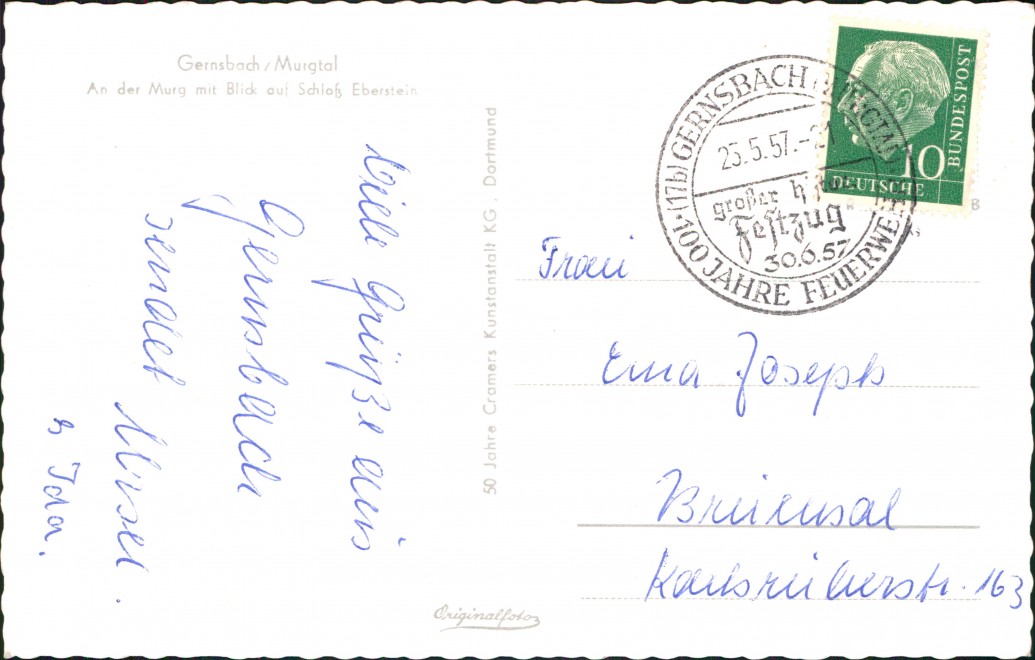 Gernsbach / Murgtal
An der Murg mit Blick auf Schloß Eberstein
Viele Grüße aus
Gernsbach
sendet
& Ida.
50 Jahre Cramers Kunstanstalt KG, Dortmund
Originalfoto
(17b) GERNSBACH (MURGTAL)
25.5.57.-21
großer
Festzug
30.6.57
100 JAHRE FEUERWEHR
10
DEUTSCHE
BUNDESPOST
Frau
Erna Joseph
Bruchsal
Karlsruherstr. 163